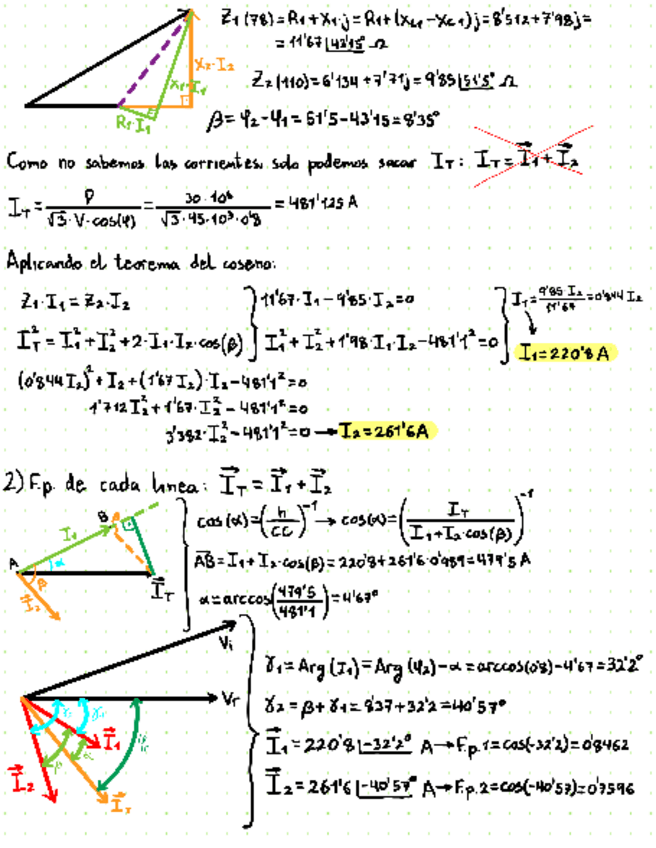 Z₁(78)=R₁+X₁·j=R₁+(X_L1-X_C1)j=8'512+7'98j=
=11'67∠43'15° Ω
X₂·I₂
X₁·I₁
R₁·I₁
Z₂(110)=6'134+7'71j=9'85∠51'5° Ω
β=φ₂-φ₁=51'5-43'15=8'35°
Como no sabemos las corrientes, solo podemos sacar I_T: I⃗_T=I⃗₁+I⃗₂
I_T=P/(√3·V·cos(φ))=30·10⁶/(√3·45·10³·0'8)=481'125 A
Aplicando el teorema del coseno:
Z₁·I₁=Z₂·I₂ } 11'67·I₁-9'85·I₂=0 } I₁=9'85·I₂/11'67=0'844 I₂
I_T²=I₁²+I₂²+2·I₁·I₂·cos(β) } I₁²+I₂²+1'98·I₁·I₂-481'1²=0 } I₁=220'8 A
(0'844I₂)²+I₂+(1'67I₂)·I₂-481'1²=0
1'712I₂²+1'67·I₂²-481'1²=0
3'382·I₂²-481'1²=0→I₂=261'6A
2) F.p. de cada línea: I⃗_T=I⃗₁+I⃗₂
A
B
I₁
α
β
I⃗₂
I⃗_T
cos(α)=(h/CC)⁻¹→cos(α)=(I_T/(I₁+I₂·cos(β)))⁻¹
AB=I₁+I₂·cos(β)=220'8+261'6·0'989=479'5 A
α=arccos(479'5/481'1)=4'67°
V_i
V_T
I⃗₁
I⃗₂
β
α
γ₁=Arg(I₁)=Arg(φ₂)-α=arccos(0'8)-4'67=32'2°
γ₂=β+γ₁=8'37+32'2=40'57°
I⃗₁=220'8∠-32'2° A→F.p.1=cos(-32'2)=0'8462
I⃗₂=261'6∠-40'57° A→F.p.2=cos(-40'57)=0'7596